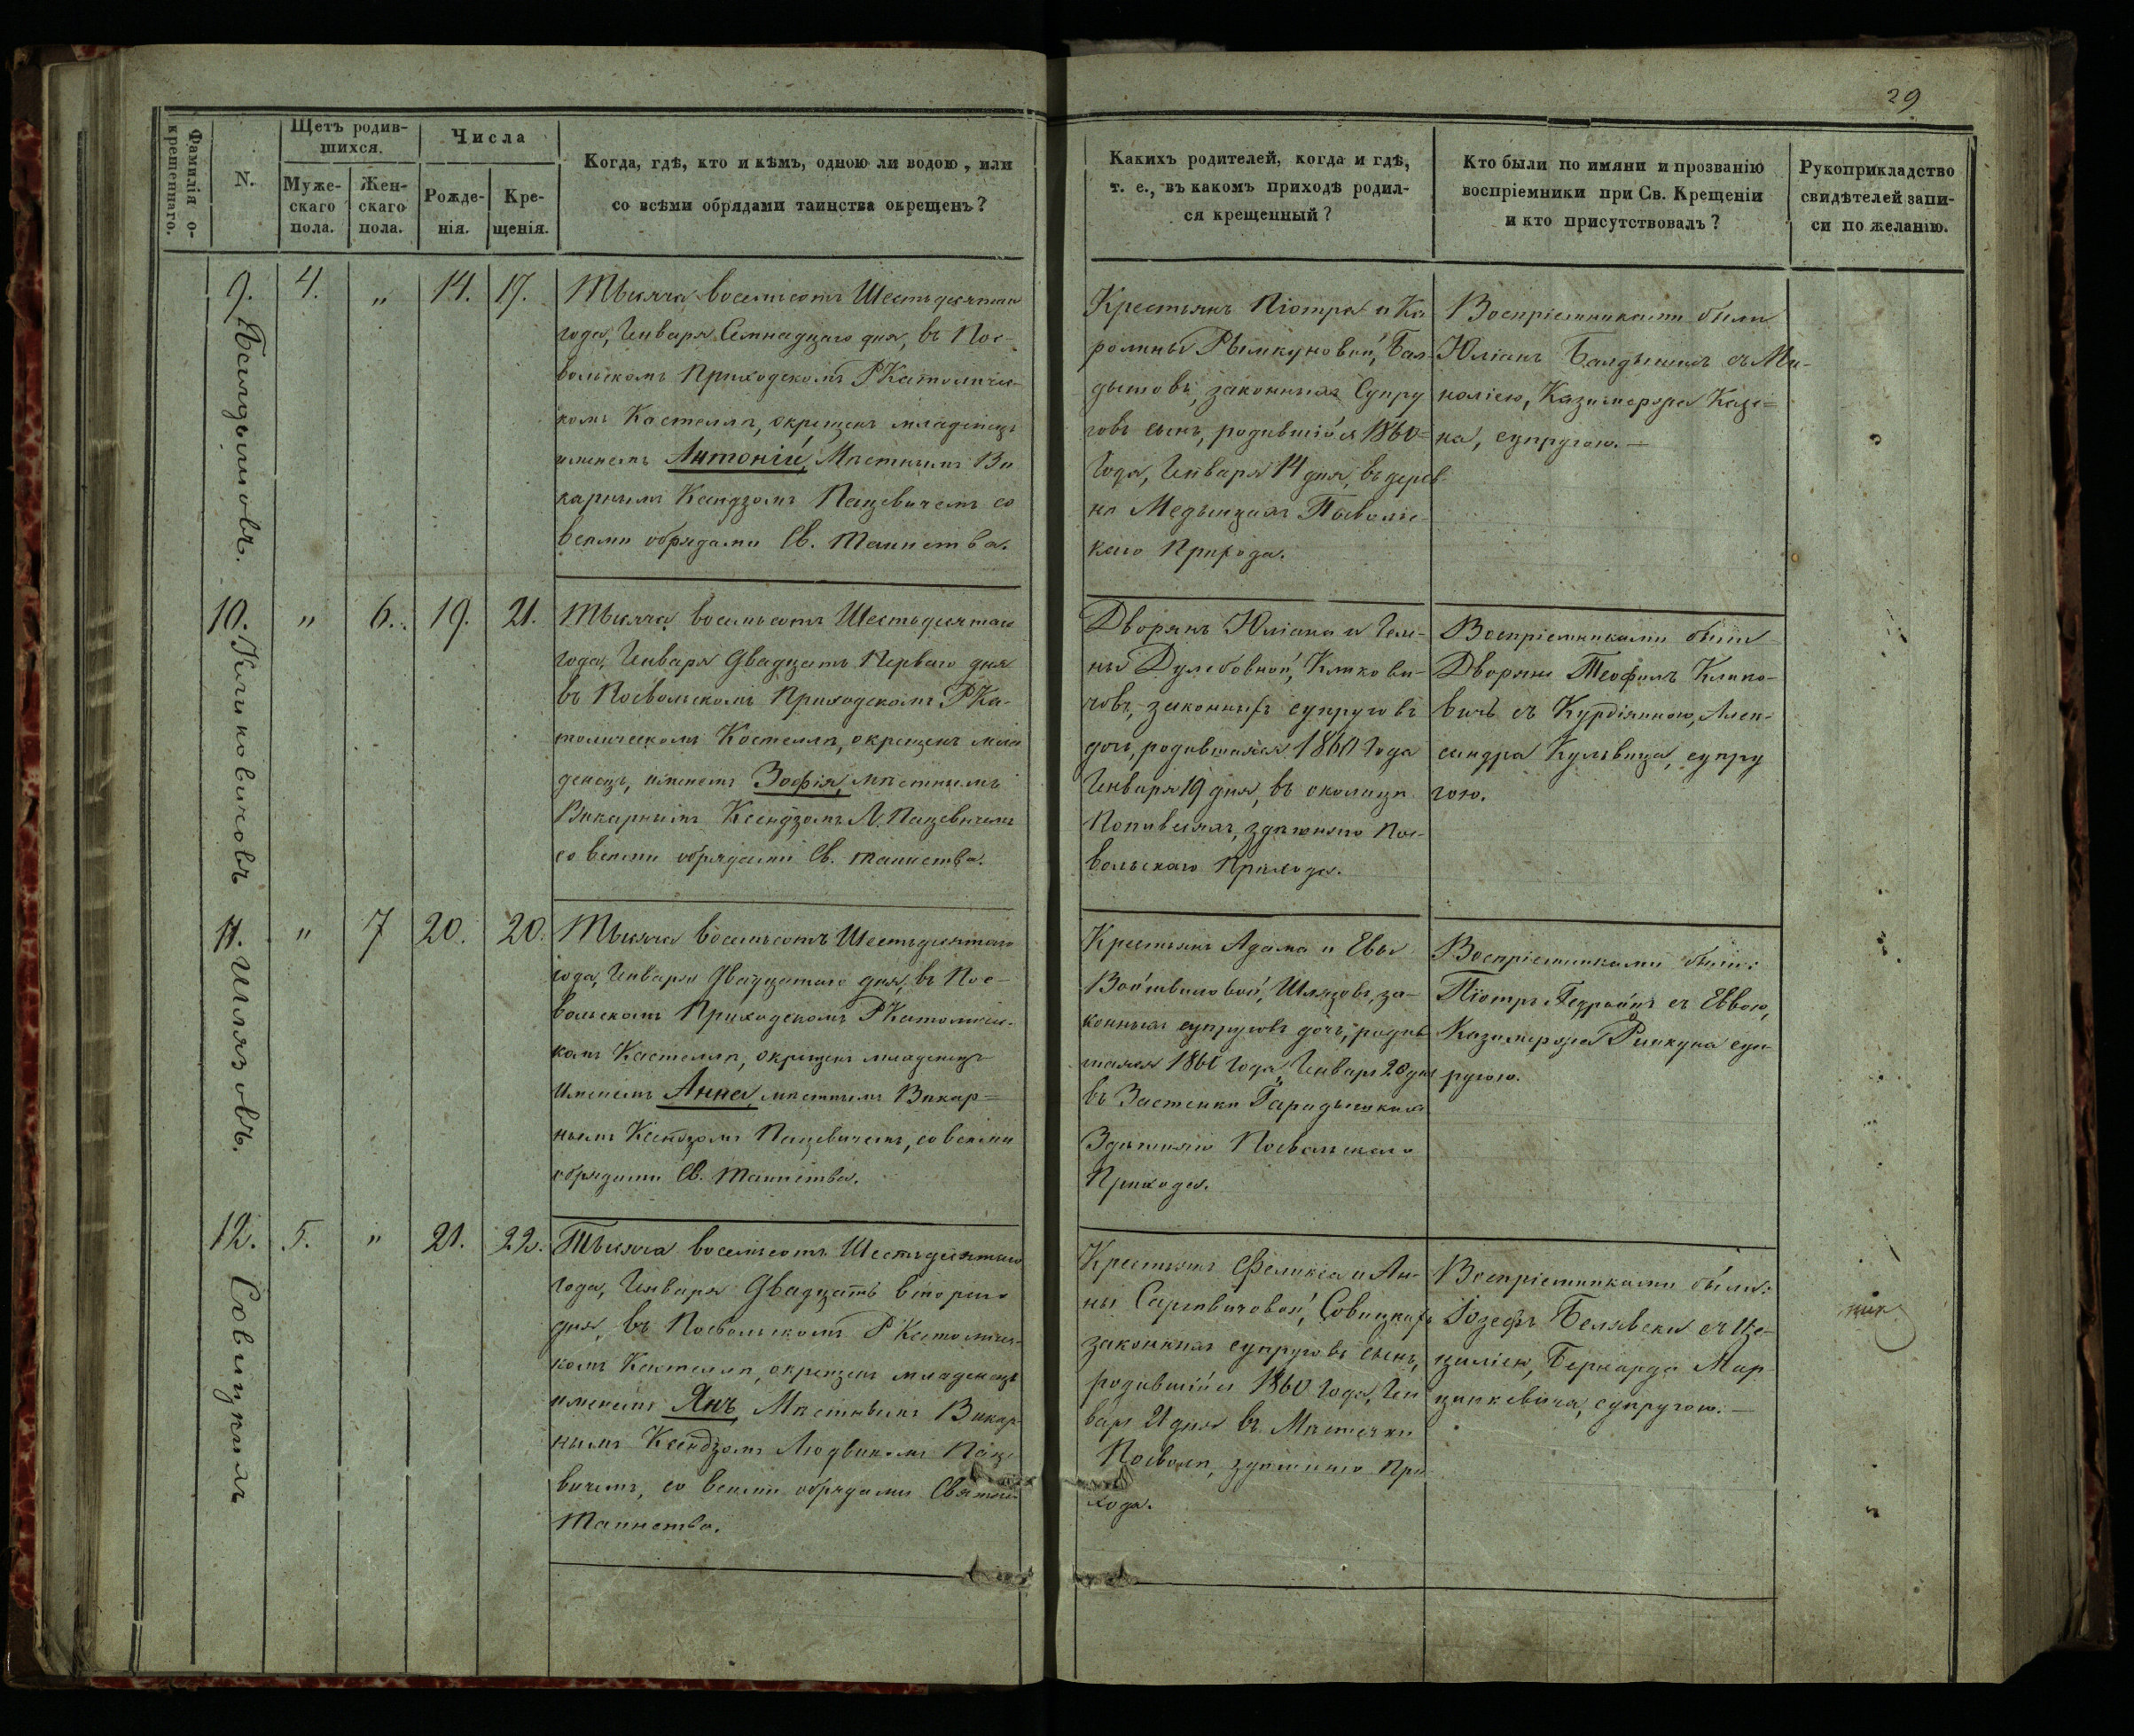 29
Фамилія о-
крещеннаго.
N.
Щетъ родив-
шихся.
Муже-
скаго
пола.
Жен-
скаго
пола.
Числа
Рожде-
нія.
Кре-
щенія.
Когда, гдѣ, кто и кѣмъ, одною ли водою, или
со всѣми обрядами таинства окрещенъ?
Какихъ родителей, когда и гдѣ,
т. е., въ какомъ приходѣ родил-
ся крещенный?
Кто были по имяни и прозванію
воспріемники при Св. Крещеніи
и кто присутствовалъ?
Рукоприкладство
свидѣтелей запи-
си по желанію.
9. Балдышовъ.
4.
"
14.
17.
Тысяча восемьсотъ Шестьдесятаго
года, Января Семнадцаго дня, въ Пос-
вольскомъ Приходскомъ РКатоличес-
комъ Костелѣ, окрещенъ младенецъ
именемъ Антоній, Мѣстнымъ Ви
карнымъ Ксендзомъ Пацевичемъ со
всѣми обрядами Св. Таинства.
Крестьянъ Піотра и Ка
ролины Рымкуновой, Бал-
дышовъ, законныхъ Супру
говъ сынъ, родившійся 1860
Года, Января 14 дня, въ дерев-
нѣ Медыцахъ Посвольс-
каго Прихода.
Воспріемниками были
Юліанъ Балдышъ съ Ми-
халіею, Казимержа
супругою. —
10. Климовичовъ
"
6.
19.
21.
Тысяча восемьсотъ Шестьдесятаго
года, Января Двадцать Перваго дня
въ Посвольскомъ Приходскомъ РКа-
толическомъ Костелѣ, окрещенъ мла
денецъ, именемъ Зофія, мѣстнымъ
Викарнымъ Ксендзомъ Л. Пацевичемъ
со всѣми обрядами Св. таинства.
Дворянъ Юліана и Геле-
ны Дулебовной, Климови-
човъ, законныхъ супруговъ
дочь, родившаяся 1860 Года
Января 19 дня, въ околицѣ
здѣшняго Пос-
вольскаго Прихода.
Воспріемниками были
Дворяни Теофилъ Климо-
вичъ съ Алек-
сандра Кульвица, супру
гою.
11. Шлязовъ.
"
7
20.
20.
Тысяча восемьсотъ Шестьдесятаго
года, Января Двадцатаго дня, въ Пос-
вольскомъ Приходскомъ РКатоличес-
комъ Костелѣ, окрещенъ младенецъ
именемъ Анна, мѣстнымъ Викар-
нымъ Ксендзомъ Пацевичемъ, со всѣми
обрядами Св. Таинства.
Крестьянъ Адама и Евы
Войтвиловой, Шлязовъ, за-
конныхъ супруговъ дочь, родив
шаяся 1860 Года, Января 20 дня
въ Застенки
Здѣшняго Посвольскаго
Прихода.
Воспріемниками были:
Піотръ съ Еввою,
Казимержа Римкуна суп-
ругою.
12. Совицкихъ
5.
"
21.
22.
Тысяча восемьсотъ Шестьдесятаго
Года, Января Двадцать втораго
дня, въ Посвольскомъ РКатоличес-
комъ Костелѣ, окрещенъ младенецъ
именемъ Янъ, Мѣстнымъ Викар-
нымъ Ксендзомъ Людвикомъ Паце
вичемъ, со всѣми обрядами Святаго
Таинства.
Крестьянъ Феликса и Ан-
ны Сарпвичовой, Совицкихъ
законныхъ супруговъ сынъ,
родившійся 1860 Года, Ян
варя 21 дня въ Мѣстечки
Посволѣ, здѣшняго При
хода.
Воспріемниками были:
Іозефъ Белявски съ Це-
циліею, Бернарда Мар
цинкевича, супругою. —